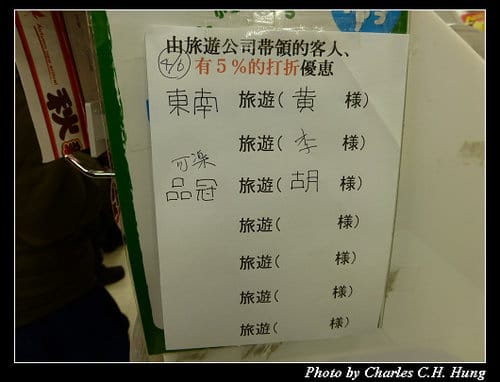 由旅遊公司帯領的客人、
4/6 有5%的打折優惠
東南 旅遊( 黄 様)
旅遊( 李 様)
可楽
品冠 旅遊( 胡 様)
旅遊( 様)
旅遊( 様)
旅遊( 様)
旅遊( 様)
秋
Photo by Charles C.H. Hung